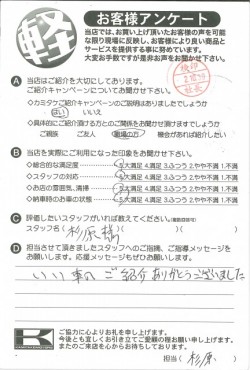 軽
お客様アンケート
当店では、お買い上げ頂いたお客様の声を可能
な限り現場に反映し、お客様により良い商品と
サービスを提供する事に努めています。
大変お手数ですが是非お声をお聞かせ下さい。
A 当店はご紹介を大切にしてあります。
ご紹介キャンペーンについてお聞かせ下さい。
◇カミタケご紹介キャンペーンのご説明はありましたでしょうか
はい いいえ
◇具体的にご紹介頂ける方とのご関係をお聞かせ頂けますでしょうか
ご親族 ご友人 職場の方 機会があれば紹介したい
B 当店を実際にご利用になった印象をお聞かせ下さい。
◇総合的な満足度 5.大満足 4.満足 3.ふつう 2.やや不満 1.不満
◇スタッフの対応 5.大満足 4.満足 3.ふつう 2.やや不満 1.不満
◇お店の雰囲気、清掃 5.大満足 4.満足 3.ふつう 2.やや不満 1.不満
◇納車時のお車の状態 5.大満足 4.満足 3.ふつう 2.やや不満 1.不満
C 評価したいスタッフがいれば教えてください。
スタッフ名( 杉原様 )( )( )
D 担当させて頂きましたスタッフへのご指摘、ご指導メッセージを
お願いします。応援メッセージもぜひお願いします。
いい車のご紹介ありがとうございました
ご協力に心よりお礼を申し上げます。
今後とも宜しくお引き立てご愛顧の程お願い申し上げます。
またのご来店を心からお待ちしております。
担当( 杉原 )